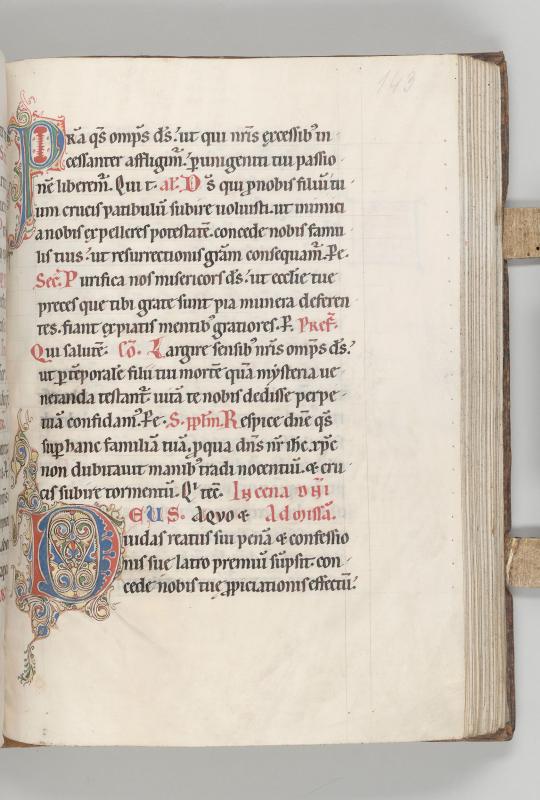 143
PRa q̄s omp̄s d̄s. ut qui nr̄is excessib' in
cessanter affligim̄. p̱ unigeniti tui passio
nē liberem̄. Qui t. al'. D s̄ qui p̱ nobis filiū tu
um crucis patibulū subire uoluisti. ut inimici
a nobis expelleres potestatē. concede nobis famu
lis tuis. ut resurrectionis grām consequam̄. P̱e.
Sec̄. Purifica nos misericors d̄s. ut eccl̄ie tue
preces que tibi grate sunt pia munera deferen
tes. fiant expiatis mentib' gratiores. P̱. Pref̄.
Qui salutē. Cō. Largire sensib' nr̄is omp̄s d̄s.
ut p̱ tēporalē filii tui mortē quā mysteria ue
neranda testant̄. uitā te nobis dedisse perpe
tuā confidam̄. P̱e. S. pp̄lm. Respice dn̄e q̄s
sup̱ hanc familiā tuā. p̱ qua dn̄s nr̄ ihc xp̄c
non dubitauit manib' tradi nocentiū. & cru
cis subire tormentū. Q' tec̄. In cena dn̄i
DEUS. A quo & Ad missā.
iudas reatus sui penā & confessio
nis sue latro premiū sūpsit. con
cede nobis tuę p̱piciationis effectū.